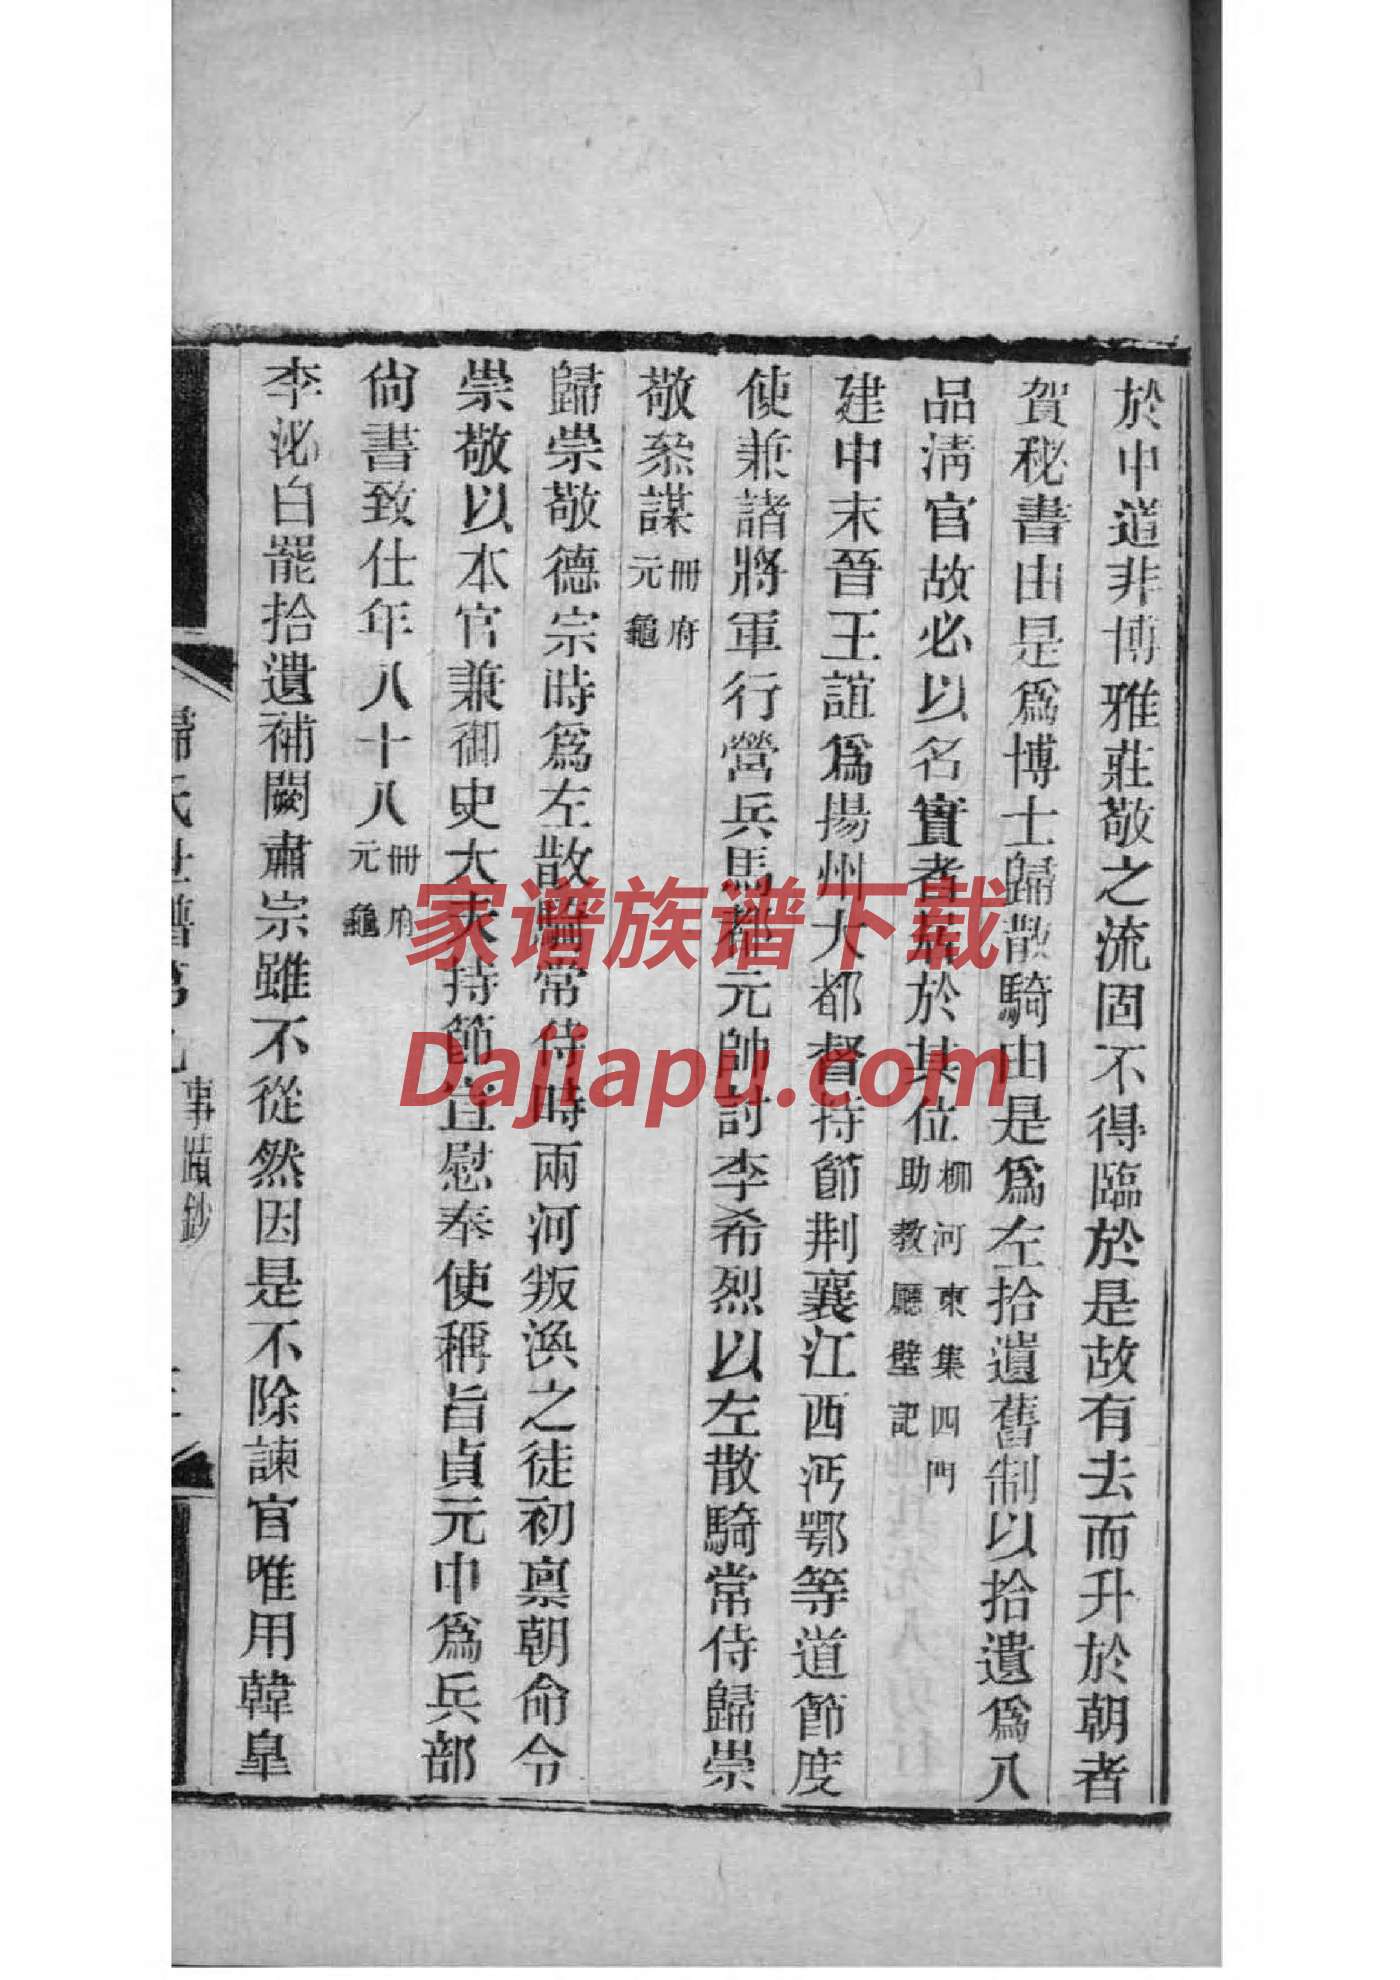 於中道非博雅莊敬之流固不得臨於是故有去而升於朝者
賀秘書由是爲博士歸散騎由是爲左拾遺舊制以拾遺爲八
品清官故必以名實者居於其位柳河東集四門助教廳壁記
建中末晉王誼爲揚州大都督持節荆襄江西沔鄂等道節度
使兼諸將軍行營兵馬都元帥討李希烈以左散騎常侍歸崇
敬叅謀冊府元龜
歸崇敬德宗時爲左散騎常侍時兩河叛渙之徒初禀朝命令
崇敬以本官兼御史大夫持節宣慰奉使稱旨貞元中爲兵部
尙書致仕年八十八冊府元龜
李泌白罷拾遺補闕肅宗雖不從然因是不除諫官唯用韓皐
歸氏世譜第
事蹟鈔
家谱族谱下载
Dajiapu.com